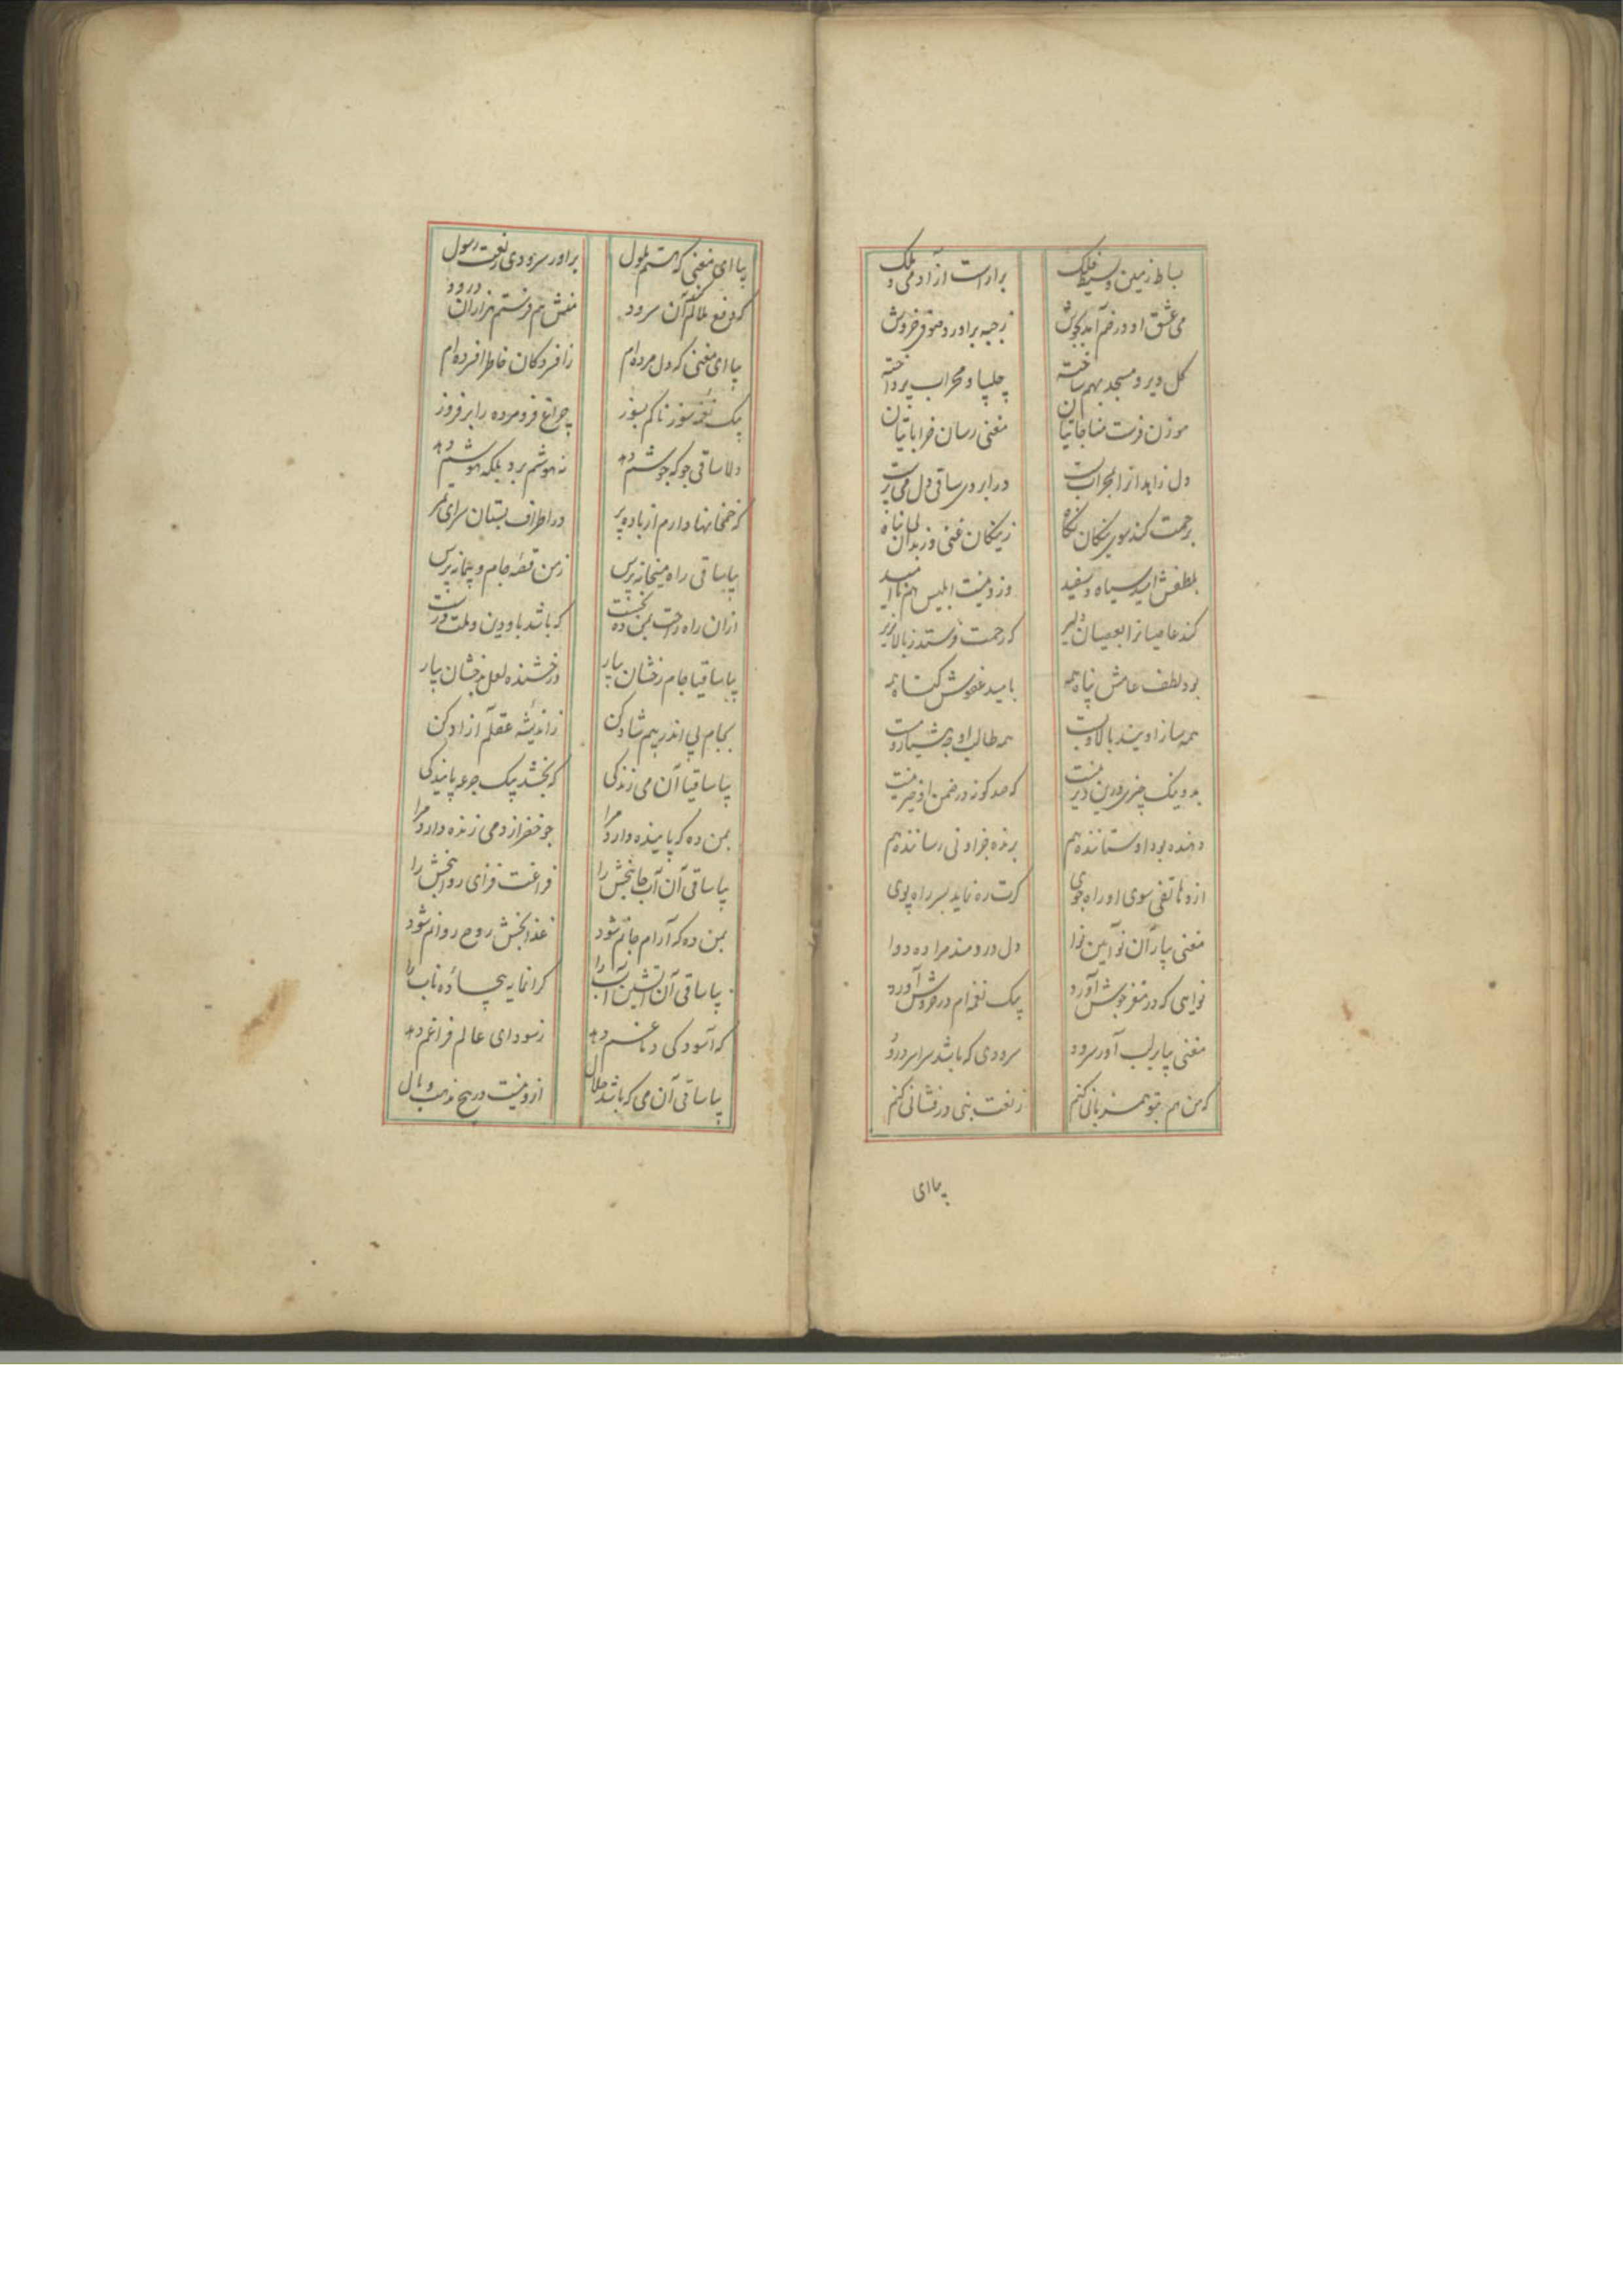 بساط زمین و بسیط فلک براراست از آدمی و ملک
می عشق او در خم آمد بجوش ز جبه براورد صوفی خروش
گل دیر و مسجد بهم ساخته چلیپا و محراب پرداخته
موذن فرست مناجاتیان مغنی رسان خراباتیان
دل زاهد از ا بمحراب بست در ابروی ساقی دل می پرست
برحمت کند سوی نیکان نگاه ز نیکان غنی وز بدان
بلطفش امید سیاه و سفید وزو نیست ابلیس هم ناامید
کند عاصیانرا بعصیان دلیر که رحمت فرستد ز بالا بزیر
بود لطف عامش پناه همه بامید عفوش گناه همه
همه ساز اویند بالا و پست همه طالب او چه هشیار و مست
بد و نیک چیزی درین دیر نیست که صد گونه در ضمن او خیر نیست
دهنده بود او ستاننده هم برنده جز او نی رساننده هم
ازو هاتفی سوی او راه جوی گرت ره نماید بسر راه پوی
مغنی بیار آن نو آیین نوا دل دردمند مرا ده دوا
نوایی که در مغز جوش آورد بیک نغمه ام در خروش آورد
مغنی بیا بر لب آور سرود سرودی که باشد سراسر درود
که من هم بتو همزبانی کنم ز نعت نبی درفشانی کنم
بیا ای
بیا ای مغنی که هستم ملول براور سرودی ز نعت رسول
که دفع ملالم کند آن سرود منش هم فرستم هزاران درود
بیا ای مغنی که دل مرده ام ز افسردگان خاطر افسرده ام
بیک نغمه سوزناکم بسوز چراغ فرو مرده را بر فروز
دلا ساقی جو که جوشم دهد نه هوشم برد بلکه هوشم دهد
که خمخانها دارم از باده پر در اطراف بستان سرای
بیا ساقی راه میخانه پرس ز من قصه جام و پیمانه پرس
ازان راه راحت بمن ده نخست که باشد باو دین و ملت درست
بیا ساقیا جام رخشان بیار درخشنده لعل بدخشان بیار
بجام پی اندر پیم شاد کن ز اندیشه عقلم آزاد کن
بیا ساقیا آن می زندگی که بخشد بیک جرعه پایندگی
بمن ده که پاینده دارد مرا چو خضر از دمی زنده دارد مرا
بیا ساقی آن آب جانبخش را فراغت فزای روانبخش را
بمن ده که آرام جانم شود غذابخش روح روانم شود
بیا ساقی آن آتشین آب را گرانمایه بیجاده ناب را
که آسودگی دماغم دهد ز سودای عالم فراغم دهد
بیا ساقی آن می که باشد حلال ازو نیست در هیچ مذهب وبال